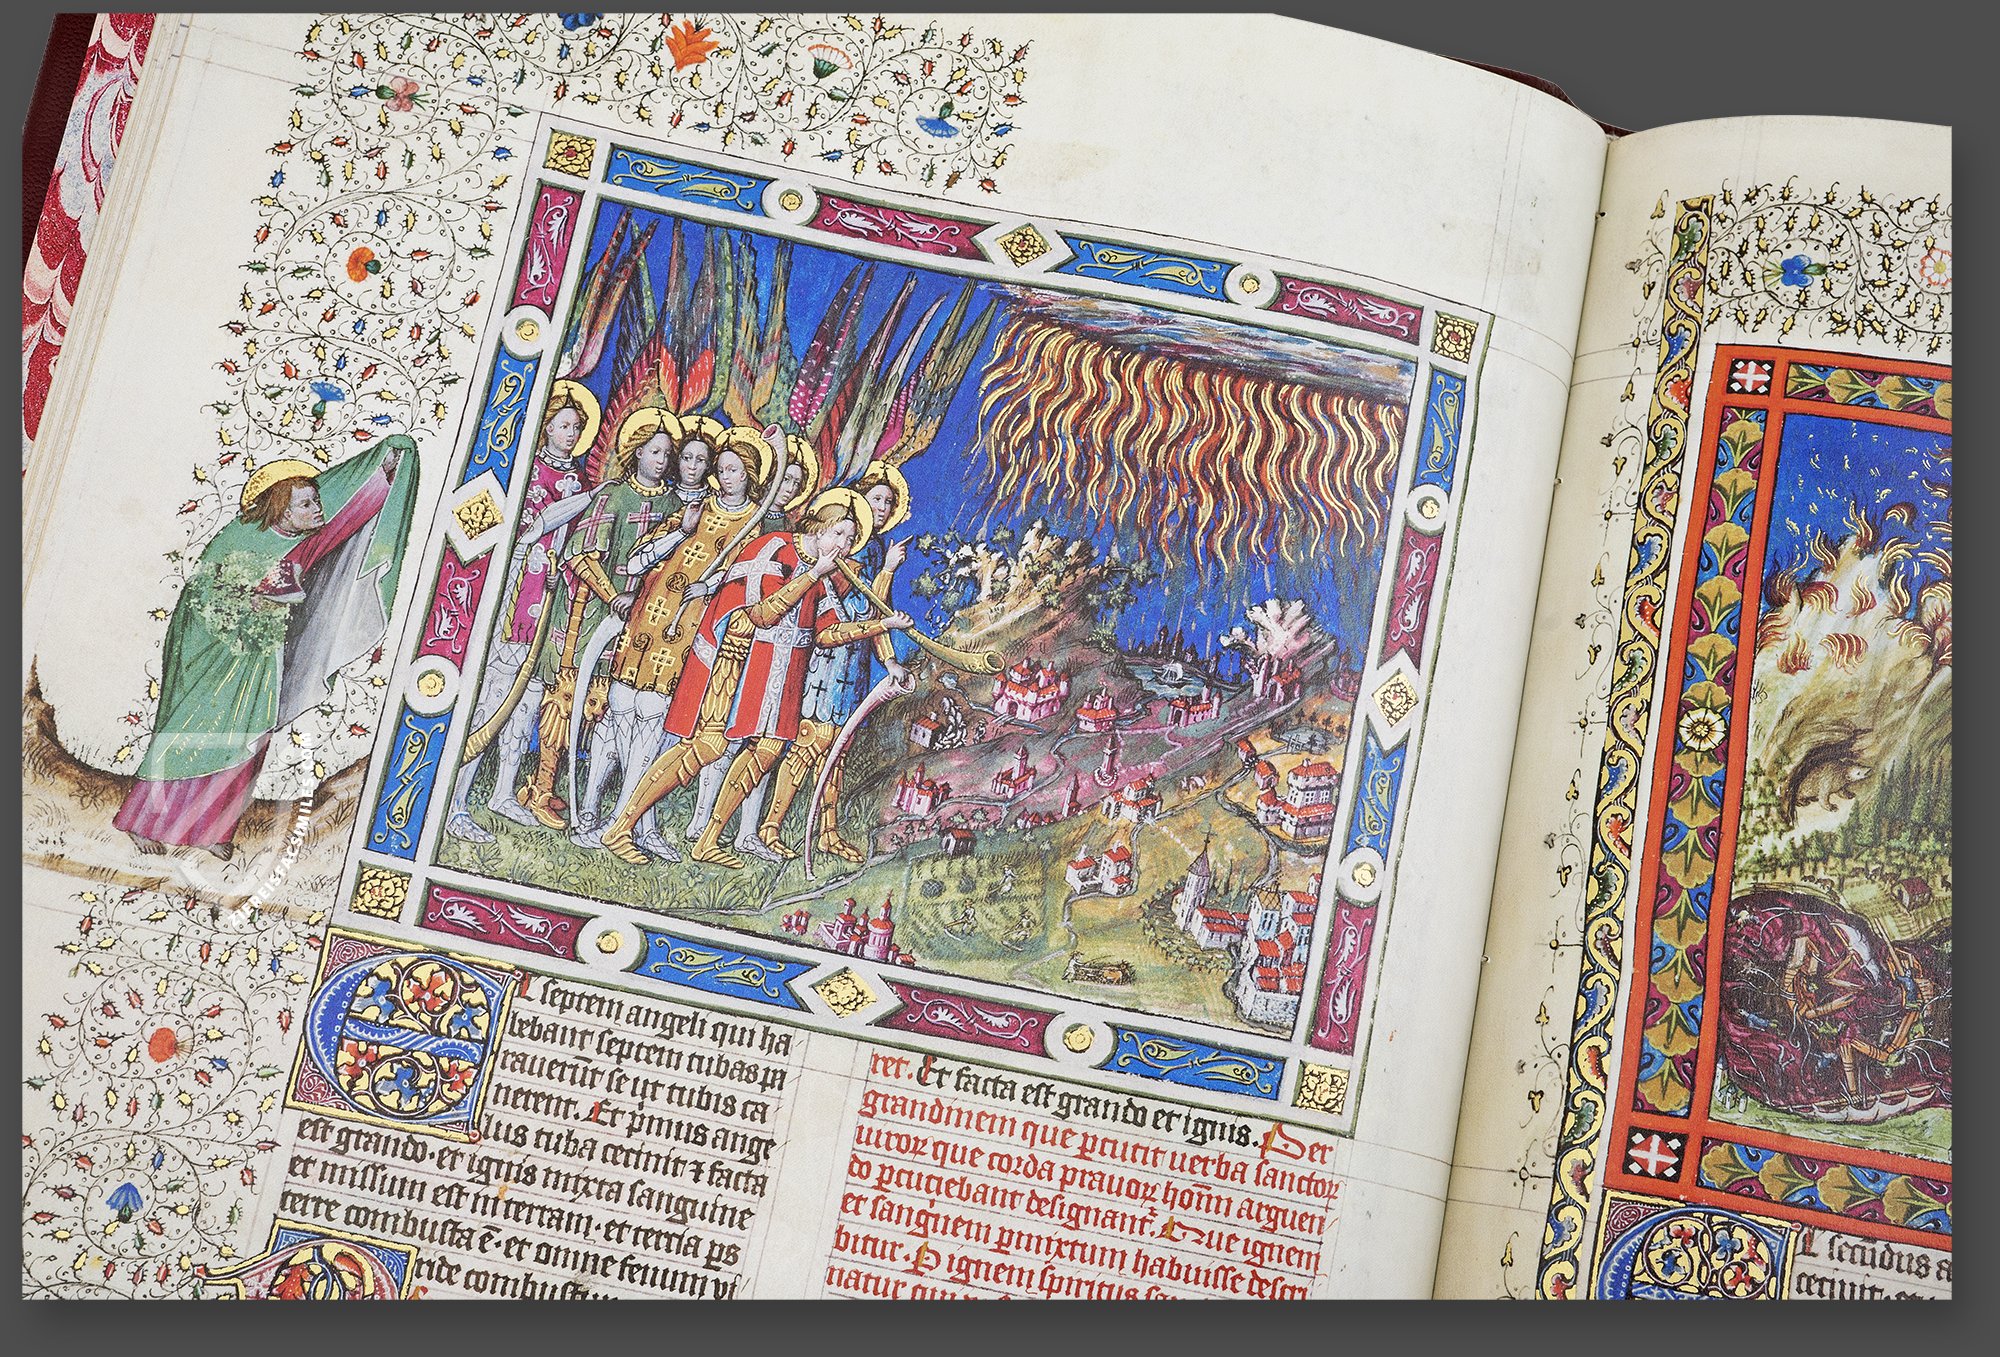 Et septem angeli qui ha
bebant septem tubas pa
rauerūt se ut tubis ca
nerent. Et primus ange
lus tuba cecinit ⁊ facta
est grando· et ignis mixta sanguine
et missum est in terram· et tercia ps
terre combusta ē· et omne fenum vi
ride combustum
ret. Et facta est grando et ignis. Per
grandinem que pcutit uerba sanctoꝝ
uiroꝝ que corda prauoꝝ homī arguen
do pcuciebant designant᷑. Que ignem
et sanguinem pmixtum habuisse descri
bitur. P ignem spiritus
natur
Et secūdus a
cecinit· et
ZIEREISFACSIMILES.COM